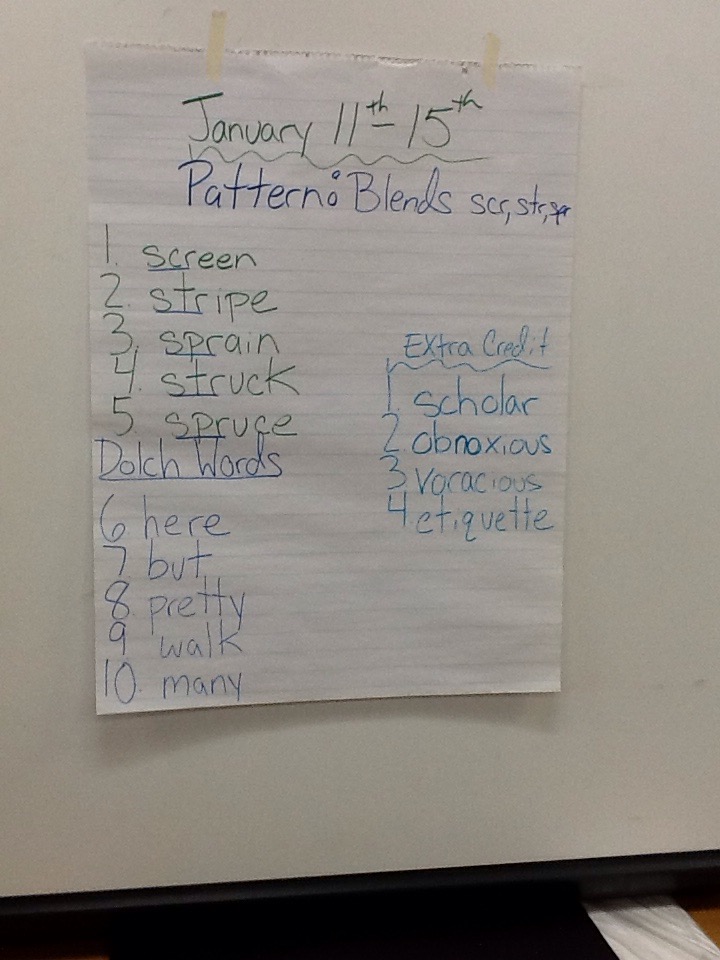 January 11th - 15th
Pattern: Blends scr, str, spr
1. screen
2. stripe
3. sprain
4. struck
5. spruce
Dolch Words
6 here
7. but
8. pretty
9 walk
10. many
Extra Credit
1. scholar
2 obnoxious
3 voracious
4 etiquette